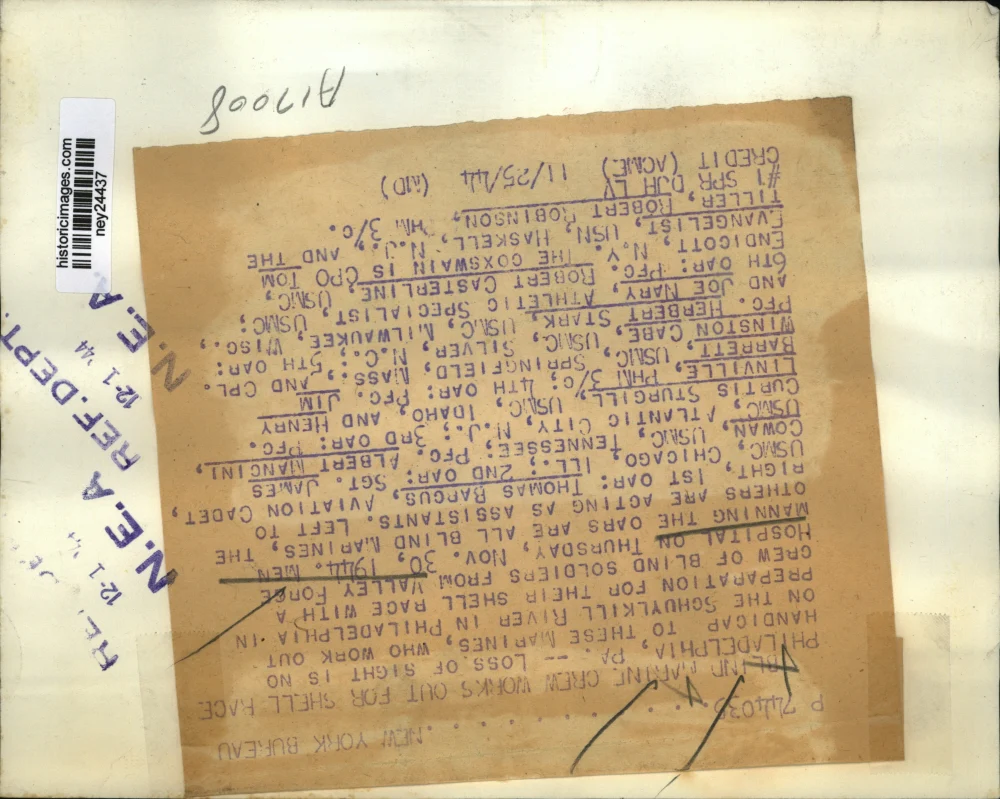 P 744038 . . . . . . . . . . . NEW YORK BUREAU
BLIND MARINE CREW WORKS OUT FOR SHELL RACE
PHILADELPHIA, PA. -- LOSS OF SIGHT IS NO
HANDICAP TO THESE MARINES, WHO WORK OUT
ON THE SCHUYLKILL RIVER IN PHILADELPHIA IN
PREPARATION FOR THEIR SHELL RACE WITH A
CREW OF BLIND SOLDIERS FROM VALLEY FORGE
HOSPITAL ON THURSDAY, NOV. 30, 1944. MEN
MANNING THE OARS ARE ALL BLIND MARINES, THE
OTHERS ARE ACTING AS ASSISTANTS. LEFT TO
RIGHT, 1ST OAR: THOMAS BARGUS, AVIATION CADET,
USMC, CHICAGO, ILL.; 2ND OAR: SGT. JAMES
COWAN, USMC, TENNESSEE; PFC. ALBERT MANCINI,
USMC, ATLANTIC CITY, N.J.; 3RD OAR: PFC.
CURTIS STURGILL, USMC, IDAHO, AND HENRY
LINVILLE, PHM 3/C; 4TH OAR: PFC. JIM
BARRETT, USMC, SPRINGFIELD, MASS., AND CPL.
WINSTON CABE, USMC, SILVER, N.C.; 5TH OAR:
PFC. HERBERT STARK, USMC, MILWAUKEE, WISC.,
AND JOE NARY, ATHLETIC SPECIALIST, USMC;
6TH OAR: PFC. ROBERT CASTERLINE, USMC,
ENDICOTT, N.Y. THE COXSWAIN IS CPO TOM
EVANGELIST, USN, HASKELL, N.J., AND THE
TILLER, ROBERT ROBINSON, PHM 3/C.
#1 SPR DJH LV 11/25/44 (MD)
CREDIT (ACME)
A17008
historicimages.com
ney24437
N.E.A REF. DEPT.
12-1 '44
12-1 '44
N.E.A